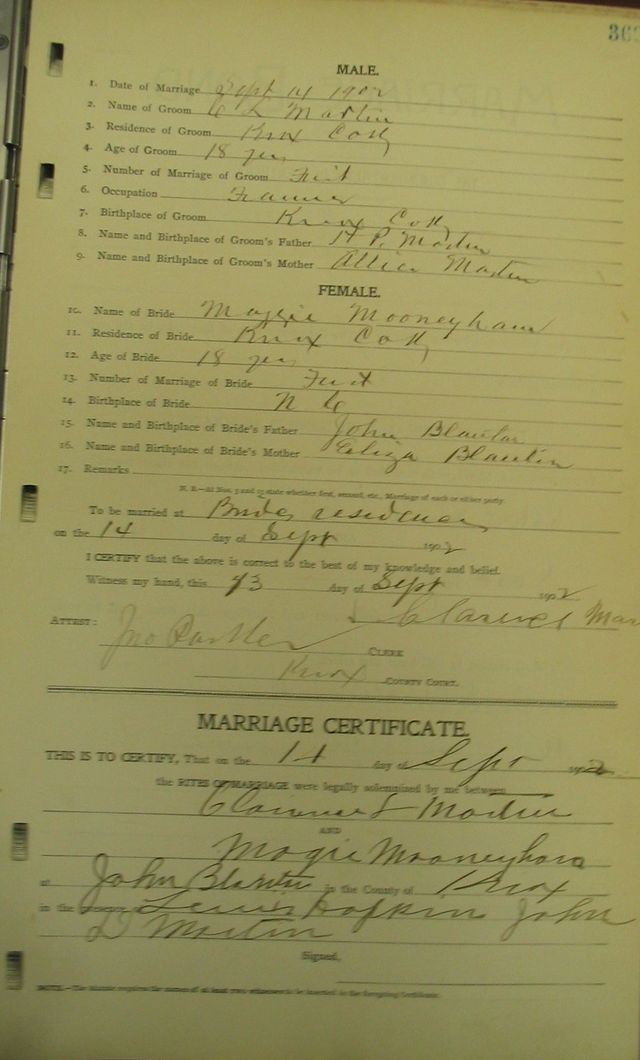 363
MALE.
1. Date of Marriage Sept 14 1902
2. Name of Groom C L Martin
3. Residence of Groom Knox Co Ky
4. Age of Groom 18 yrs
5. Number of Marriage of Groom First
6. Occupation Farmer
7. Birthplace of Groom Knox Co Ky
8. Name and Birthplace of Groom's Father H P. Martin
9. Name and Birthplace of Groom's Mother Allice Martin
FEMALE.
10. Name of Bride Maggie Mooneyham
11. Residence of Bride Knox Co Ky
12. Age of Bride 18 yrs
13. Number of Marriage of Bride First
14. Birthplace of Bride N C
15. Name and Birthplace of Bride's Father John Blanton
16. Name and Birthplace of Bride's Mother Eliza Blanton
17. Remarks
N. B.—At Nos. 5 and 13 state whether first, second, etc., Marriage of each or either party.
To be married at Brides residence
on the 14 day of Sept 1902
I CERTIFY that the above is correct to the best of my knowledge and belief.
Witness my hand, this 13 day of Sept 1902
Clarence Mar
ATTEST:
Jno CLERK
Knox COUNTY COURT.
MARRIAGE CERTIFICATE.
THIS IS TO CERTIFY, That on the 14 day of Sept 1902
the RITES OF MARRIAGE were legally solemnized by me between
Clarence L Martin
AND
Magie Mooneyham
at John Blanton in the County of Knox
in the presence of Lewis Hopkins John
D Martin
Signed,
NOTE.—The statute requires the names of at least two witnesses to be inserted in the foregoing Certificate.